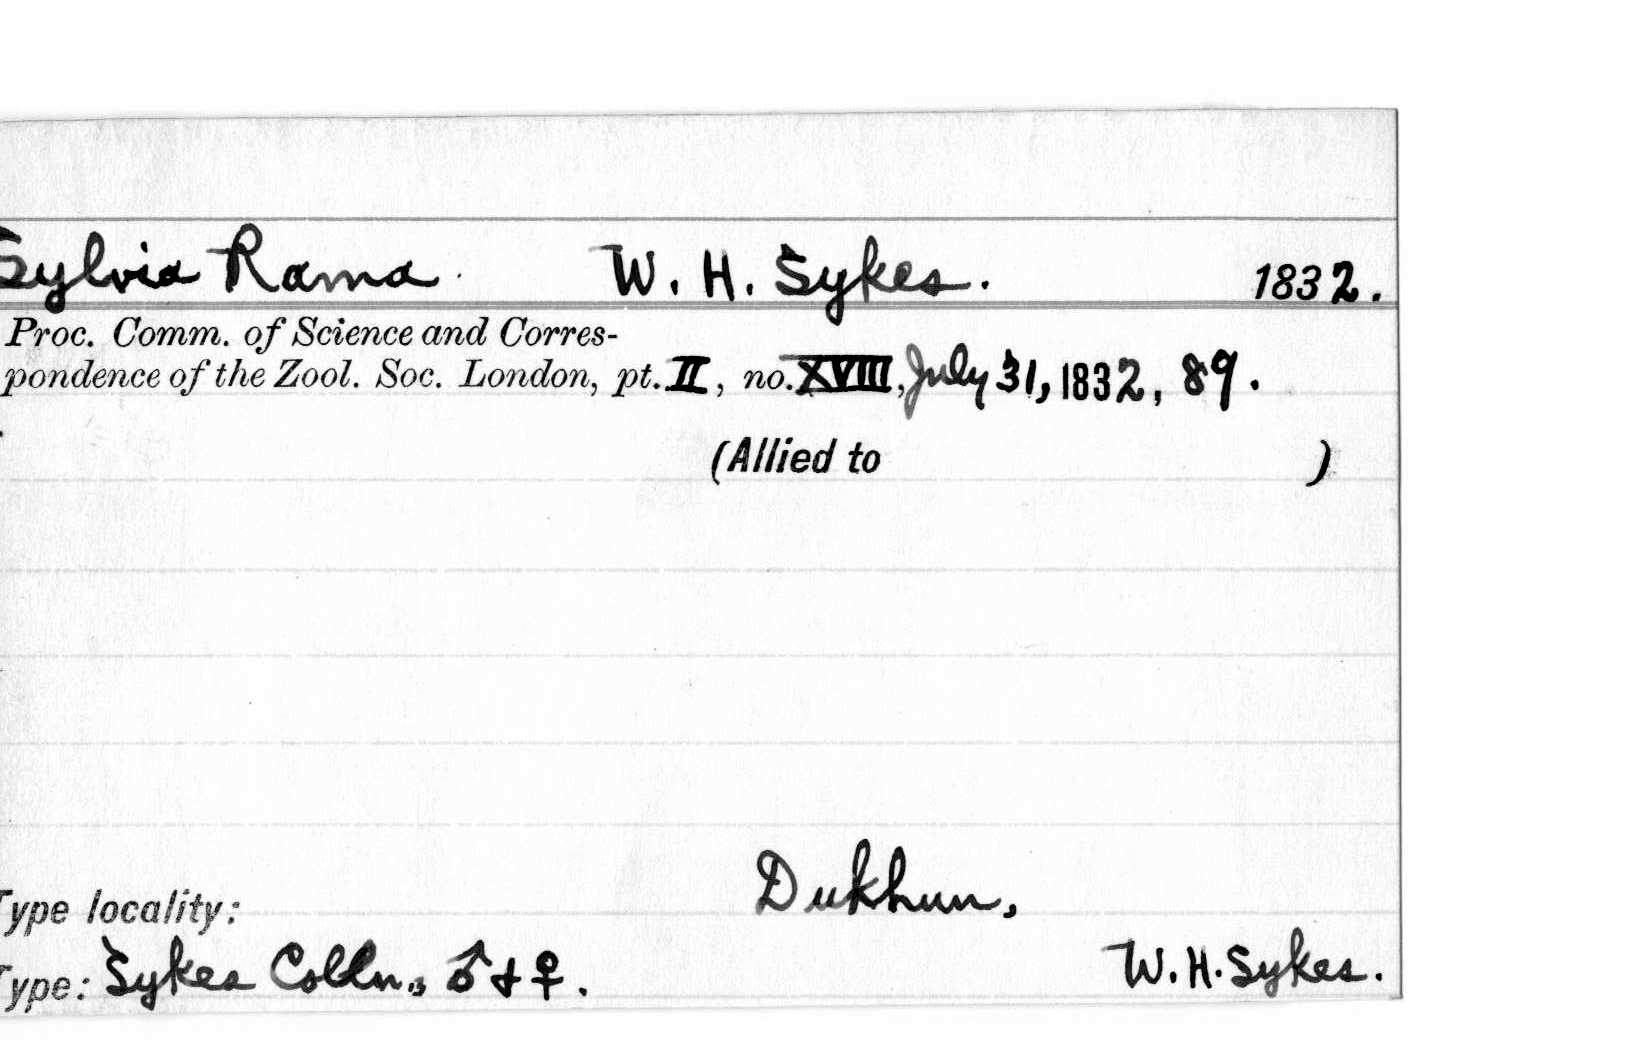 Sylvia Rama W. H. Sykes. 1832.
Proc. Comm. of Science and Corres-
pondence of the Zool. Soc. London, pt. II, no. XVIII, July 31, 1832, 89.
(Allied to )
Dukhun,
Type locality:
Type: Sykes Colln., ♂ & ♀. W. H. Sykes.